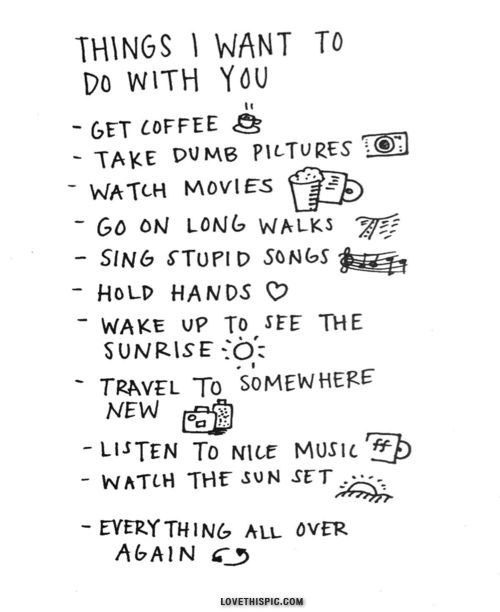 THINGS I WANT TO
DO WITH YOU
- GET COFFEE
- TAKE DUMB PICTURES
- WATCH MOVIES
- GO ON LONG WALKS
- SING STUPID SONGS
- HOLD HANDS ♡
- WAKE UP TO SEE THE
SUNRISE
- TRAVEL TO SOMEWHERE
NEW
- LISTEN TO NICE MUSIC
ff
- WATCH THE SUN SET
- EVERYTHING ALL OVER
AGAIN
LOVETHISPIC.COM